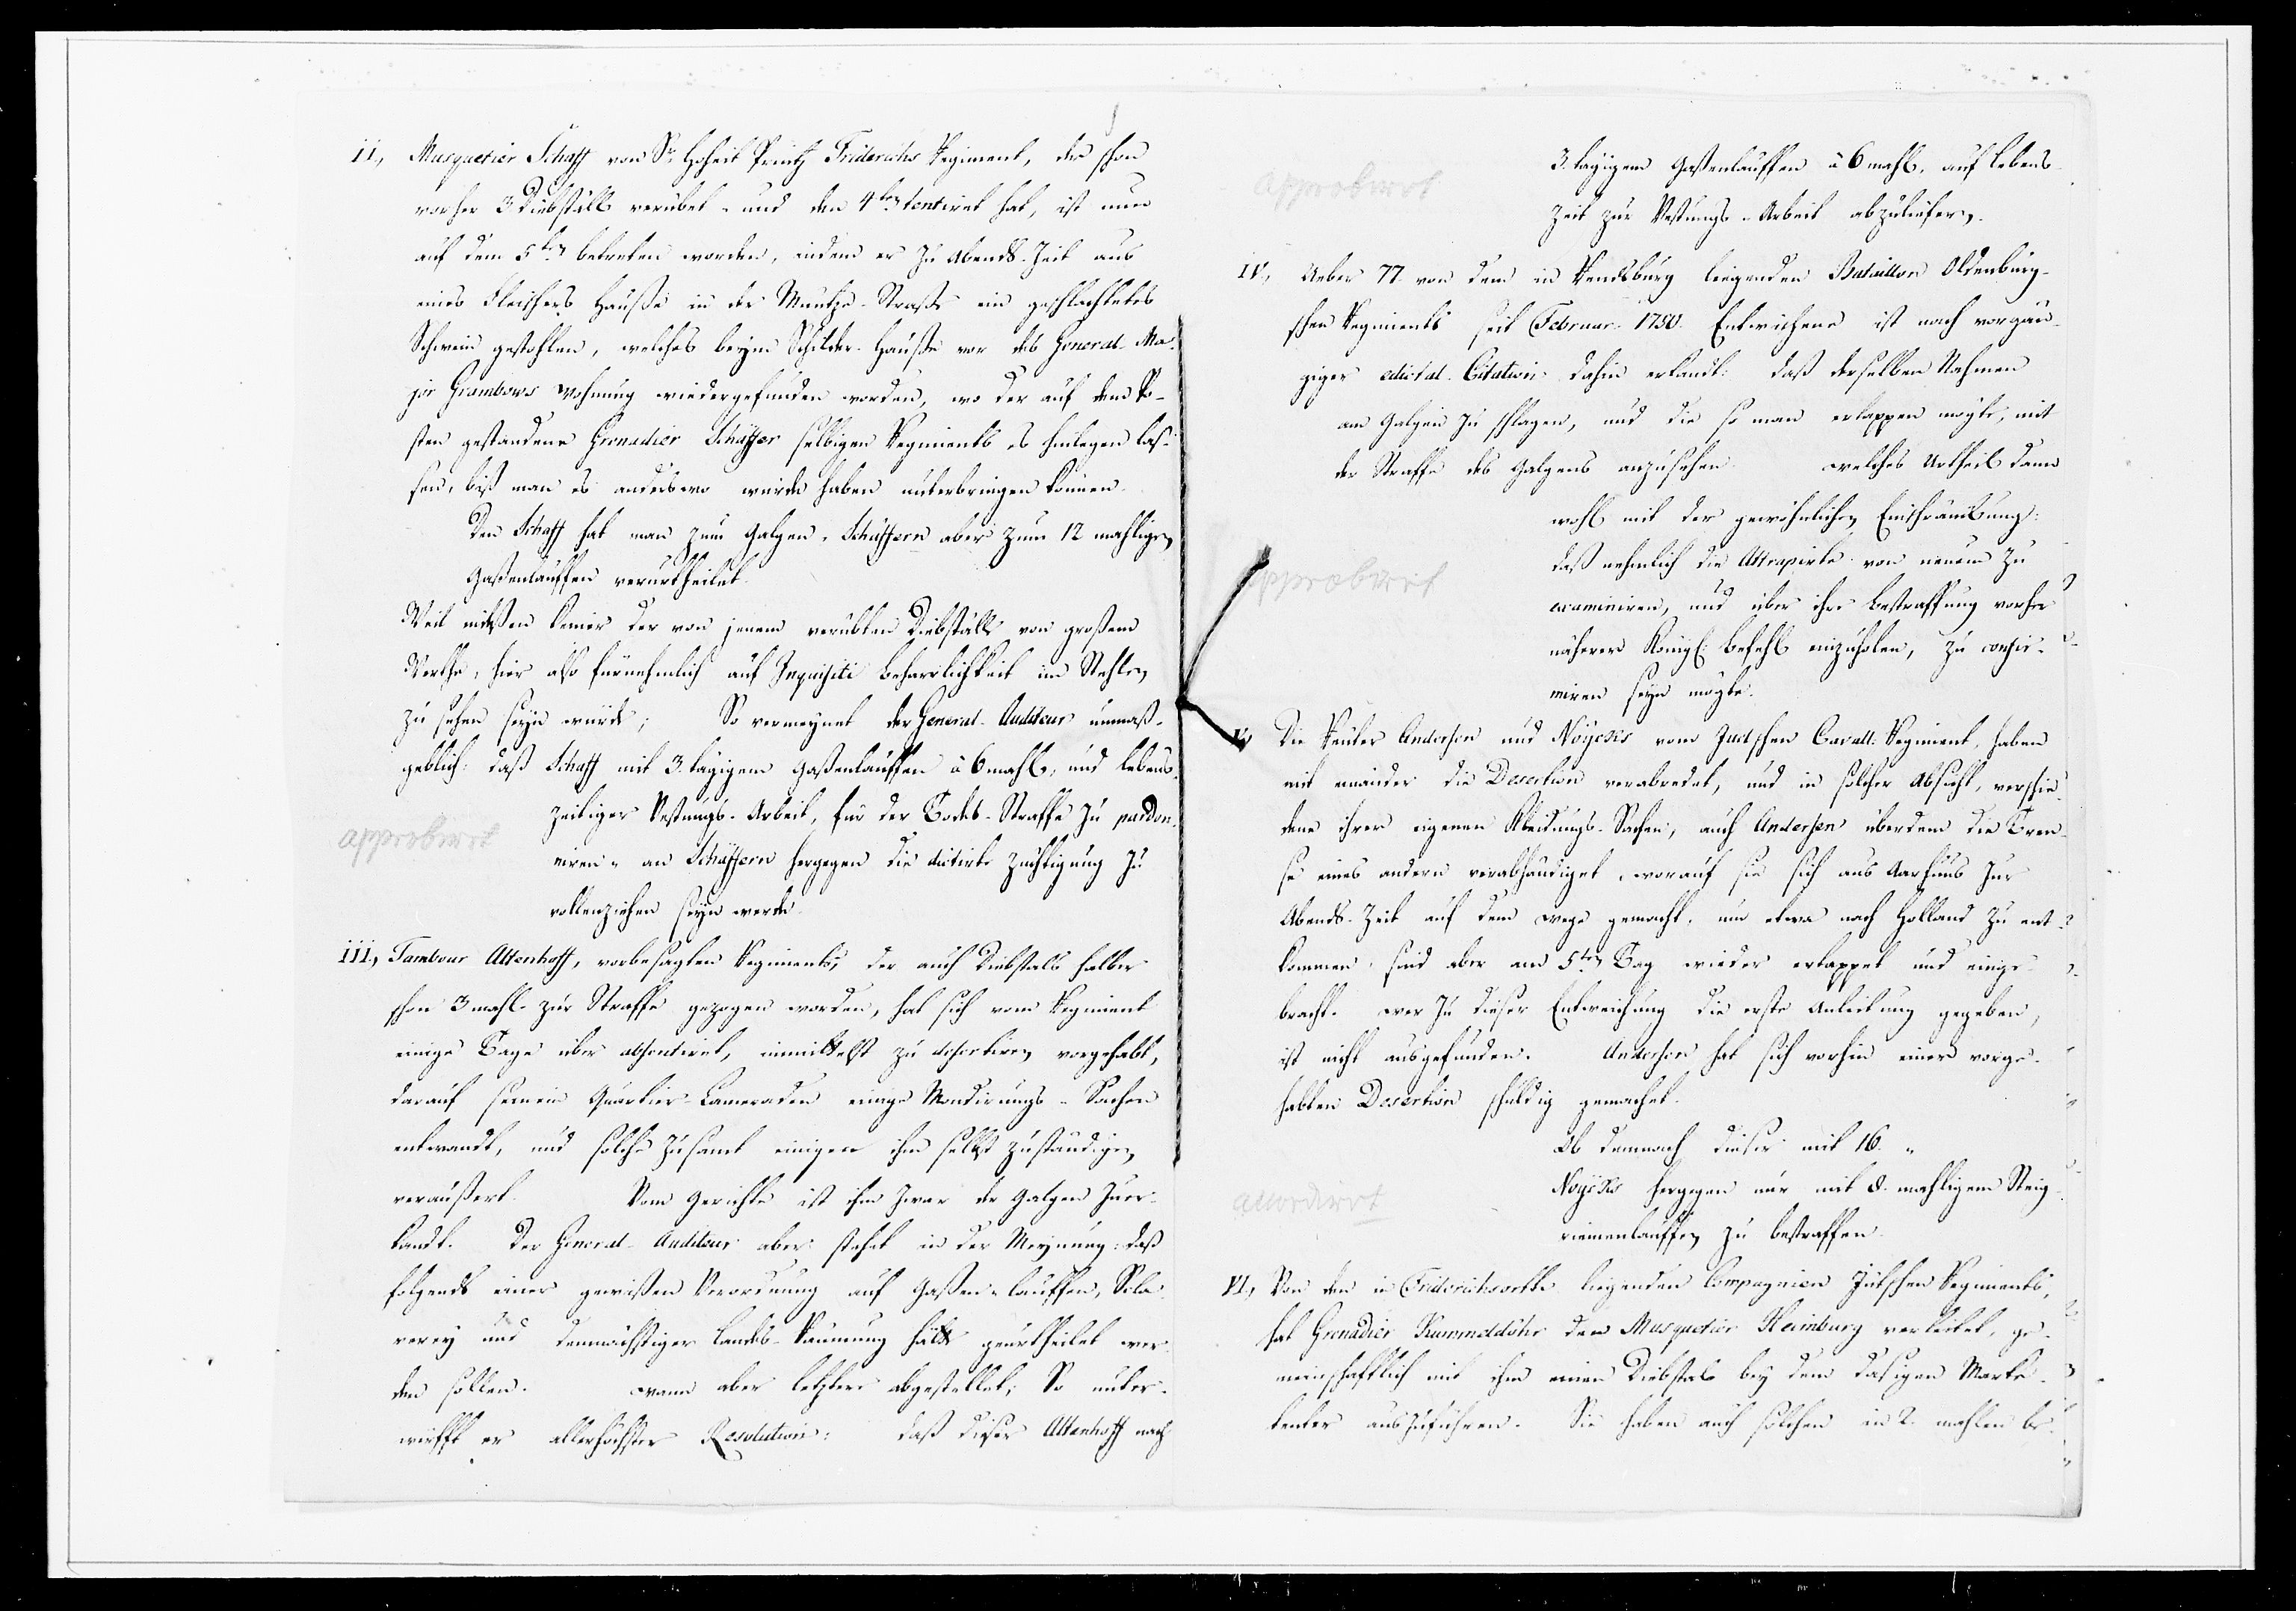 II., Musquetier Schaff von Sr. Hoheit Printz Friderichs Regiment, der schon
vorher 3 Diebställe verübet - und den 4ten tentiret hat, ist nun
auf dem 5ten betreten worden, indem er zu Abends-Zeit aus
eines Fleischers Hauße in der Muntze-Straße ein geschlachtetes
Schwein gestohlen, welches beym Schilder-Hauße vor des General-Ma-
jor Grambows Wohnung wiedergefunden worden, wo der auf dem Po-
sten gestandene Grenadier Schäffer selbigen Regiments es hinlegen las-
sen, biß man es anderswo würde haben unterbringen können.
Den Schaff hat man zum Galgen, Schäffern aber zum 12 mahligen
Gaßenlauffen verurtheilet.
Weil indeßen keiner der von jenem verübten Diebställe von großem
Werthe, hier also fürnehmlich auf Inquisiti Beharrlichkeit im Stehlen
zu sehen seyn würde; So vermeynet der General-Auditeur unmaß-
geblich: daß Schaff mit 3.tägigem Gaßenlauffen â 6 mahl, und lebens-
zeitiger Vestungs-Arbeit, für der Todes-Straffe zu pardon-
niren - an Schäffern hergegen die dictirte Züchtigung zu
vollenziehen seyn werde.
approbirt
III., Tambour Altenhoff, vorbesagten Regiments, der auch Diebstals halber
schon 3 mahl zur Straffe gezogen worden, hat sich vom Regiment
einige Tage über absentiret, inmittelst zu desertiren vorgehabt,
darauf seinem Quartier-Cameraden einige Mondirungs-Sachen
entwandt, und solche zusamt einigen ihm selbst zuständigen
veräußert. Vom Gerichte ist ihm zwar der Galgen zuer-
kandt. Der General-Auditeur aber stehet in der Meynung: daß
folgends einer gewißen Verordnung auf Gaßen-lauffen, Scla-
verey und demnächstiger Landes-Räumung hätte geurtheilet wer-
den sollen. wann aber letztere abgestellet; So unter-
wirfft er allerhöchster Resolution: daß dieser Altenhoff nach
3.tägigem Gaßenlauffen â 6 mahl, auf Lebens-
Zeit zur Vestungs-Arbeit abzuliefern.
approbirt
IV., Ueber 77. von dem in Rendsburg liegenden Bataillon Oldenburg-
schen Regiments seit Februar. 1750. Entwichene ist nach vorgän-
giger edictal-Citation dahin erkandt: daß derselben Nahmen
am Galgen zu schlagen, und die so man ertappen mögte, mit
der Straffe des Galgens anzusehen. welches Urtheil dann
wohl mit der gewöhnlichen Einschränkung:
daß nehmlich die Attrapirte von neuem zu
examiniren, und über ihre Bestraffung vorher
näherer Königl: Befehl einzuholen, zu confir-
miren seyn mögte.
approbirt
V., Die Reuter Andersen und Nöyckis vom Jütschen Cavall. Regiment, haben
mit einander die Desertion verabredet, und in solcher Absicht, verschie-
dene ihrer eigenen Kleidungs-Sachen, auch Andersen überdem die Tren-
se eines andern verabhändiget, worauf sie sich aus Aarhuus zur
Abends-Zeit auf dem Wege gemacht, um etwa nach Holland zu ent-
kommen, sind aber am 5ten Tag wieder ertappet und einge-
bracht. wer zu dieser Entweichung die erste Anleitung gegeben,
ist nicht ausgefunden. Andersen hat sich vorhin einer vorge-
habten Desertion schuldig gemachet.
Ob demnach dieser mit 16. -
Nöyckis hergegen nur mit 8. mahligem Steig-
riemenlauffen zu bestraffen.
accordirt
VI., Von den in Friderichswerk liegenden Compagnien Jütschen Regiments,
hat Grenadier Kummeldöhr den Musquetier Heimburg verleitet, ge-
meinschafftlich mit ihm einen Diebstal bey dem dasigen Marke-
tenter auszuführen. Sie haben auch solchen in 2. mahlen be-